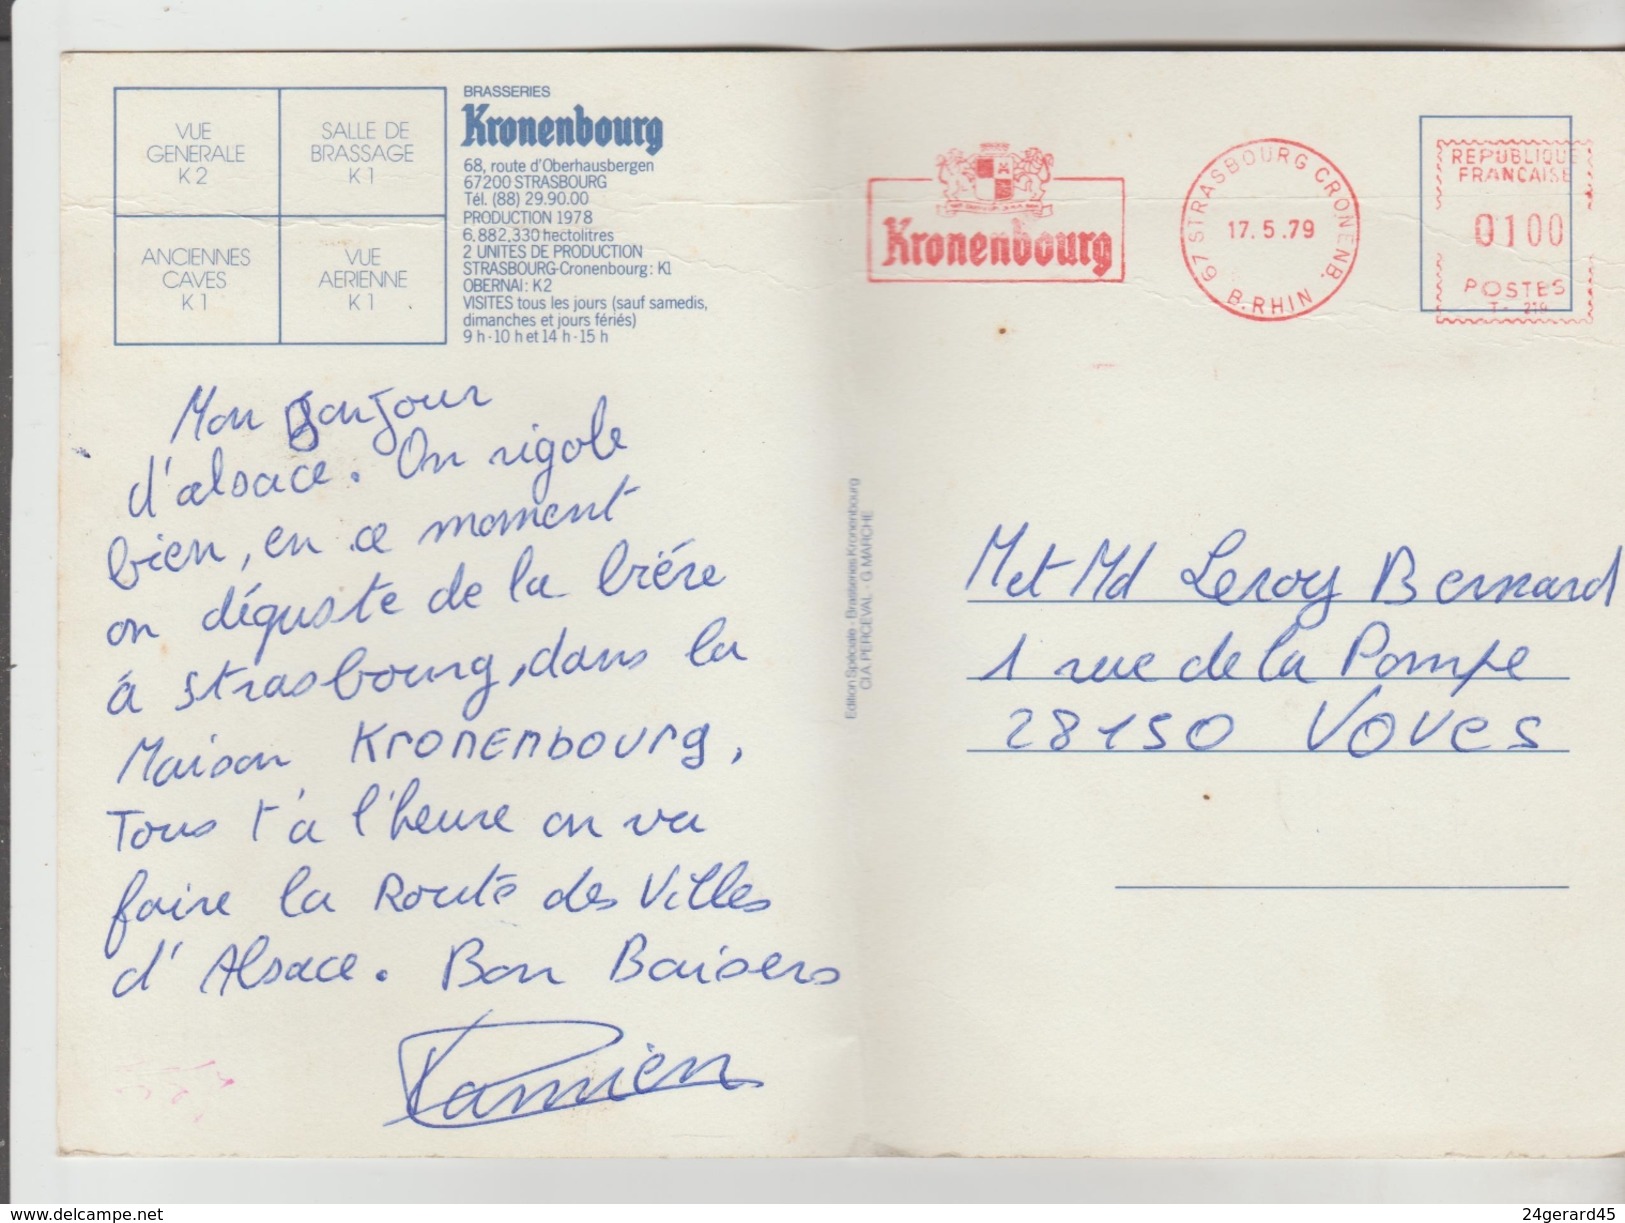 VUE
GENERALE
K 2
SALLE DE
BRASSAGE
K 1
ANCIENNES
CAVES
K 1
VUE
AERIENNE
K 1
BRASSERIES
Kronenbourg
68, route d'Oberhausbergen
67200 STRASBOURG
Tél. (88) 29.90.00
PRODUCTION 1978
6.882.330 hectolitres
2 UNITES DE PRODUCTION
STRASBOURG-Cronenbourg: K1
OBERNAI: K2
VISITES tous les jours (sauf samedis,
dimanches et jours fériés)
9 h - 10 h et 14 h - 15 h
Mon Bonjour
d'alsace. On rigole
bien, en ce moment
on déguste de la biére
à Strasbourg, dans la
Maison KRONENBOURG,
Tous t'a l'heure on va
faire la Route des Villes
d'Alsace. Bon Baisers
Edition Spéciale - Brasseries Kronenbourg
Cl A. PERCEVAL - G. MARCHE
Kronenbourg
67 STRASBOURG CRONENB.
17.5.79
B. RHIN
REPUBLIQUE
FRANCAISE
0100
POSTES
M et Md Leroy Bernard
1 rue de la Pompe
28150 Voves
www.delcampe.net
24gerard45